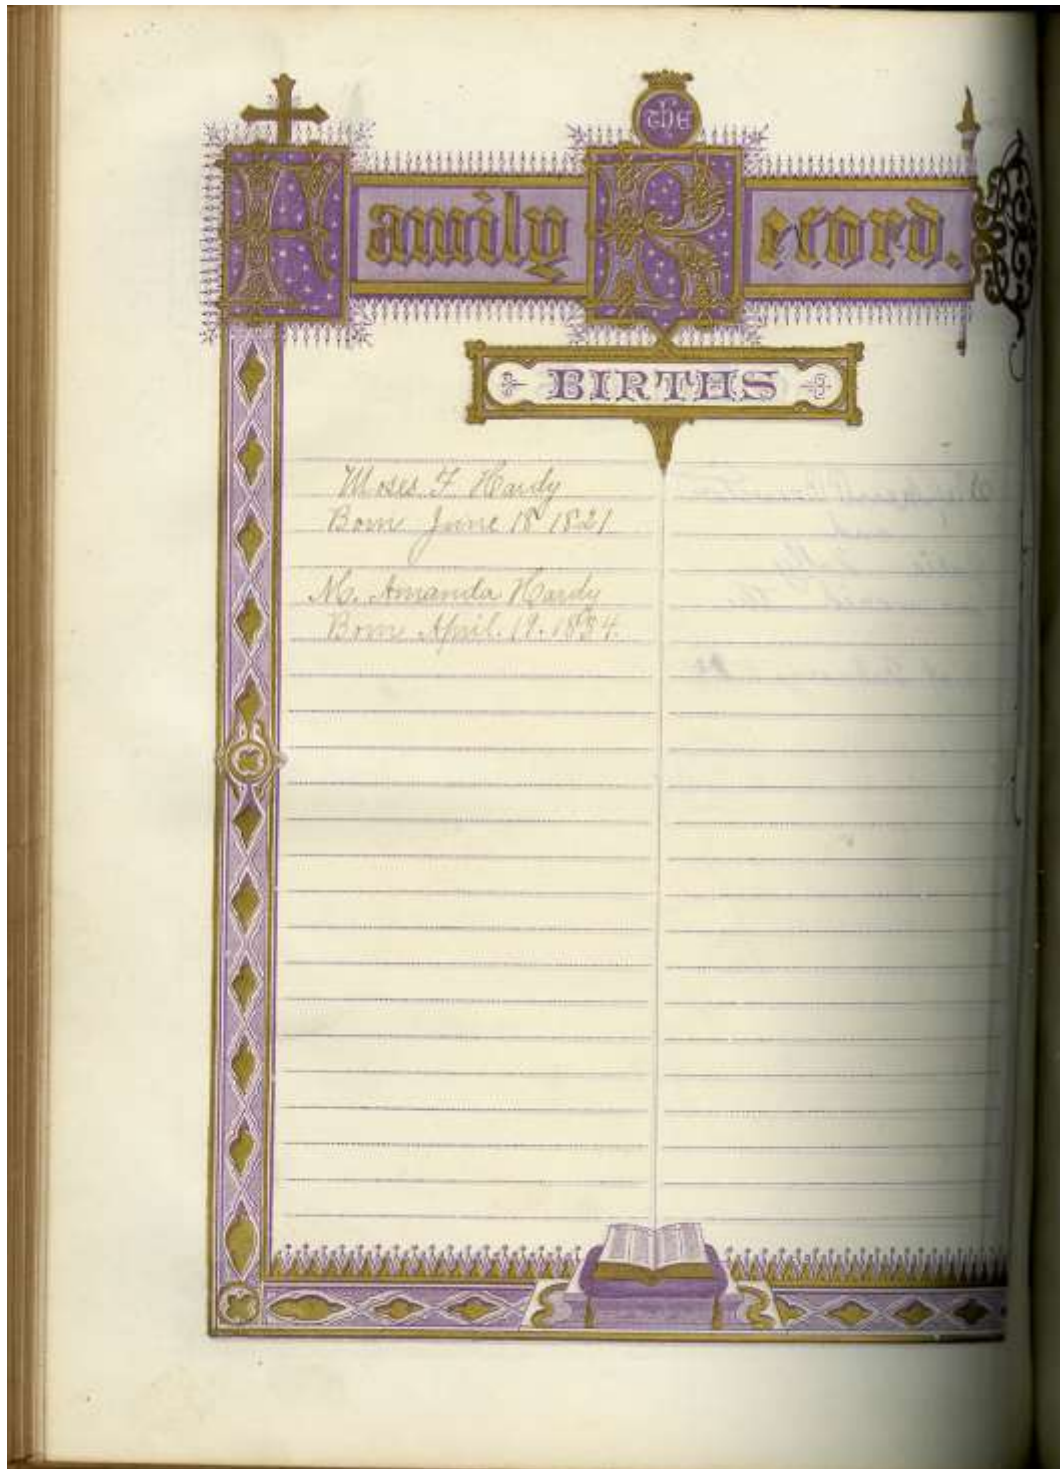 the
Family Record.
BIRTHS
Moses F. Hardy
Born June 18 1821
M. Amanda Hardy
Born April. 19. 1834.